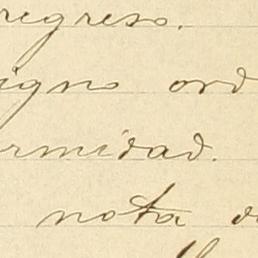 regreso.
igno ord
ormidad.
nota d